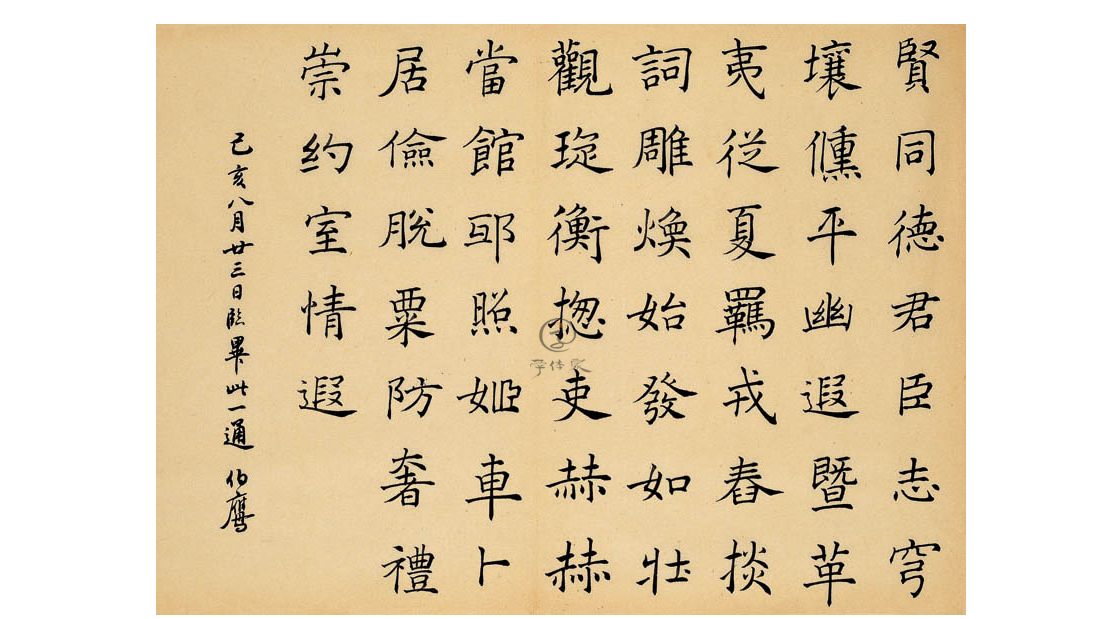 賢同徳君臣志穹
壤平幽遐暨革
夷従夏羈戎舂掞
詞雕煥始發如壯
觀琁衡揔吏赫赫
當館照姫車卜
居儉脫粟防奢禮
崇約室情遐
己亥八月廿三日臨畢此一通 伯鷹
字体家